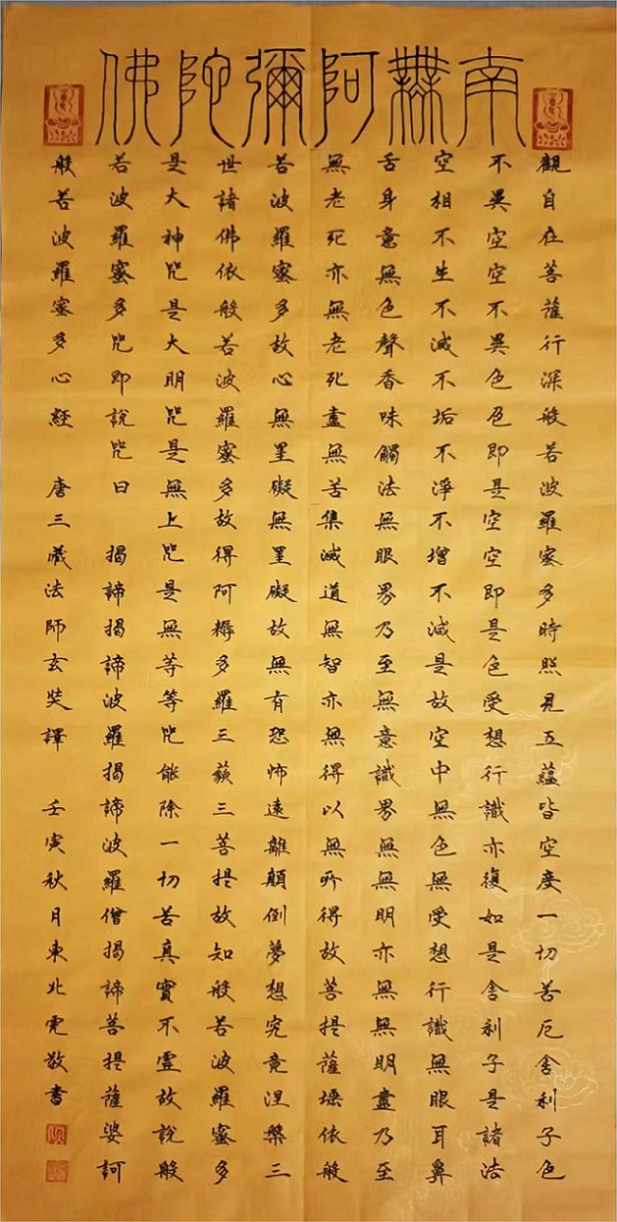 南無阿彌陀佛
觀自在菩薩行深般若波羅蜜多時照見五蘊皆空度一切苦厄舍利子色
不異空空不異色色即是空空即是色受想行識亦復如是舍利子是諸法
空相不生不滅不垢不淨不增不減是故空中無色無受想行識無眼耳鼻
舌身意無色聲香味觸法無眼界乃至無意識界無無明亦無無明盡乃至
無老死亦無老死盡無苦集滅道無智亦無得以無所得故菩提薩埵依般
若波羅蜜多故心無罣礙無罣礙故無有恐怖遠離顛倒夢想究竟涅槃三
世諸佛依般若波羅蜜多故得阿耨多羅三藐三菩提故知般若波羅蜜多
是大神咒是大明咒是無上咒是無等等咒能除一切苦真實不虛故說般
若波羅蜜多咒即說咒曰 揭諦揭諦波羅揭諦波羅僧揭諦菩提薩婆訶
般若波羅蜜多心經 唐三藏法師玄奘譯 壬寅秋月東北敬書